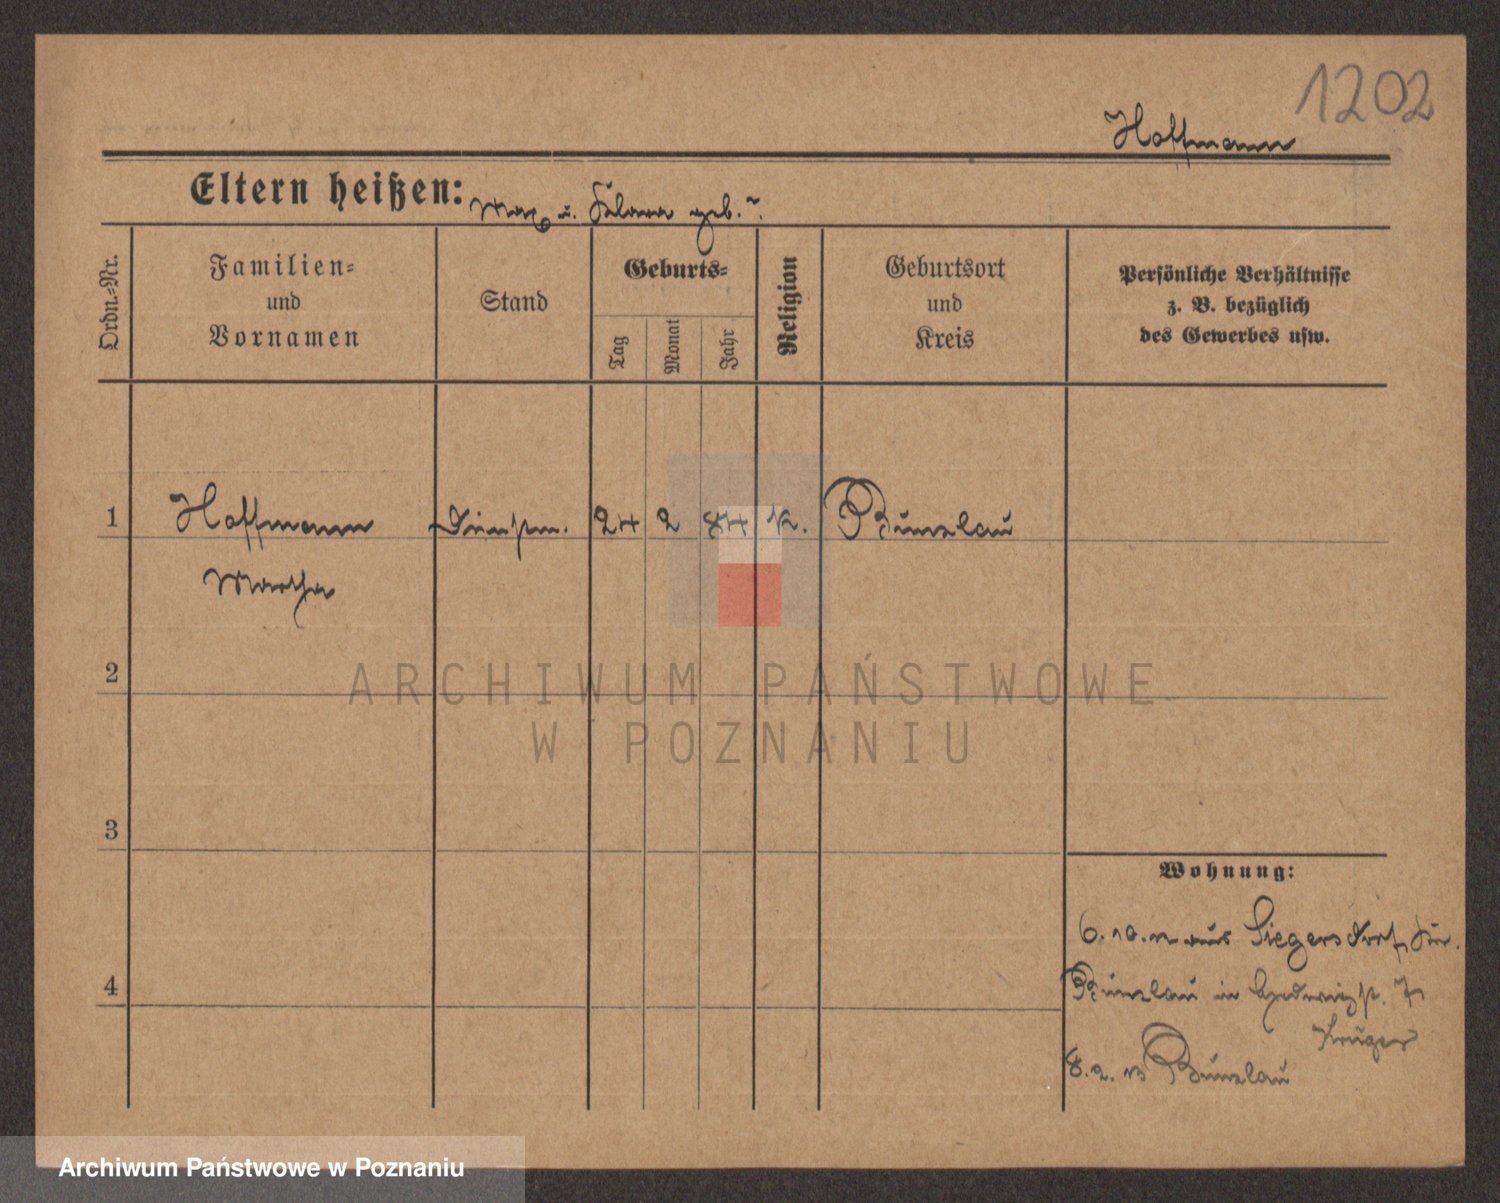 1202
Hoffmann
Eltern heißen: Max u. Klara geb. ?.
Ordn.-Nr.
Familien-
und
Vornamen
Stand
Geburts-
Tag
Monat
Jahr
Religion
Geburtsort
und
Kreis
Persönliche Verhältnisse
z. B. bezüglich
des Gewerbes usw.
1 Hoffmann 24 2 84 k. Bunzlau
Martha
2
3
4
Wohnung:
6.10.12 aus Siegersdorf Kr.
Bunzlau in Hedwigst. 7
Krüger
8.2.13 Bunzlau
ARCHIWUM PAŃSTWOWE
W POZNANIU
Archiwum Państwowe w Poznaniu